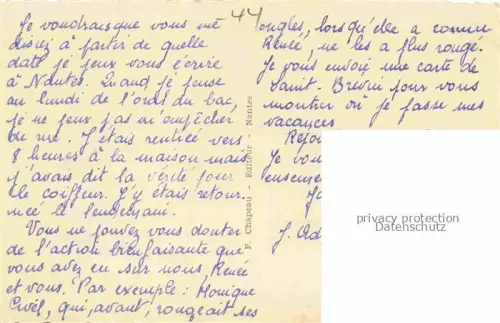 Je voudrais que vous me
disiez à partir de quelle
date je peux vous écrire
à Nantes. Quand je pense
au lundi de l'oral du bac,
je ne peux pas m'empêcher
de rire. J'étais rentrée vers
8 heures à la maison mais
j'avais dit la vérité pour
le coiffeur. J'y étais retour
née le lendemain.
Vous ne pouvez vous douter
de l'action bienfaisante que
vous avez eu sur nous, Renée
et vous. Par exemple : Monique
qui, avant, rongeait ses
44
ongles, lorsqu'elle a connu
Renée, ne les a plus rongé.
Je vous envoie une carte de
Saint. Brévin pour vous
montrer où je passe mes
vacances
Je vou
J. Ad
F. Chapeau - Editeur - Nantes
privacy protection
Datenschutz